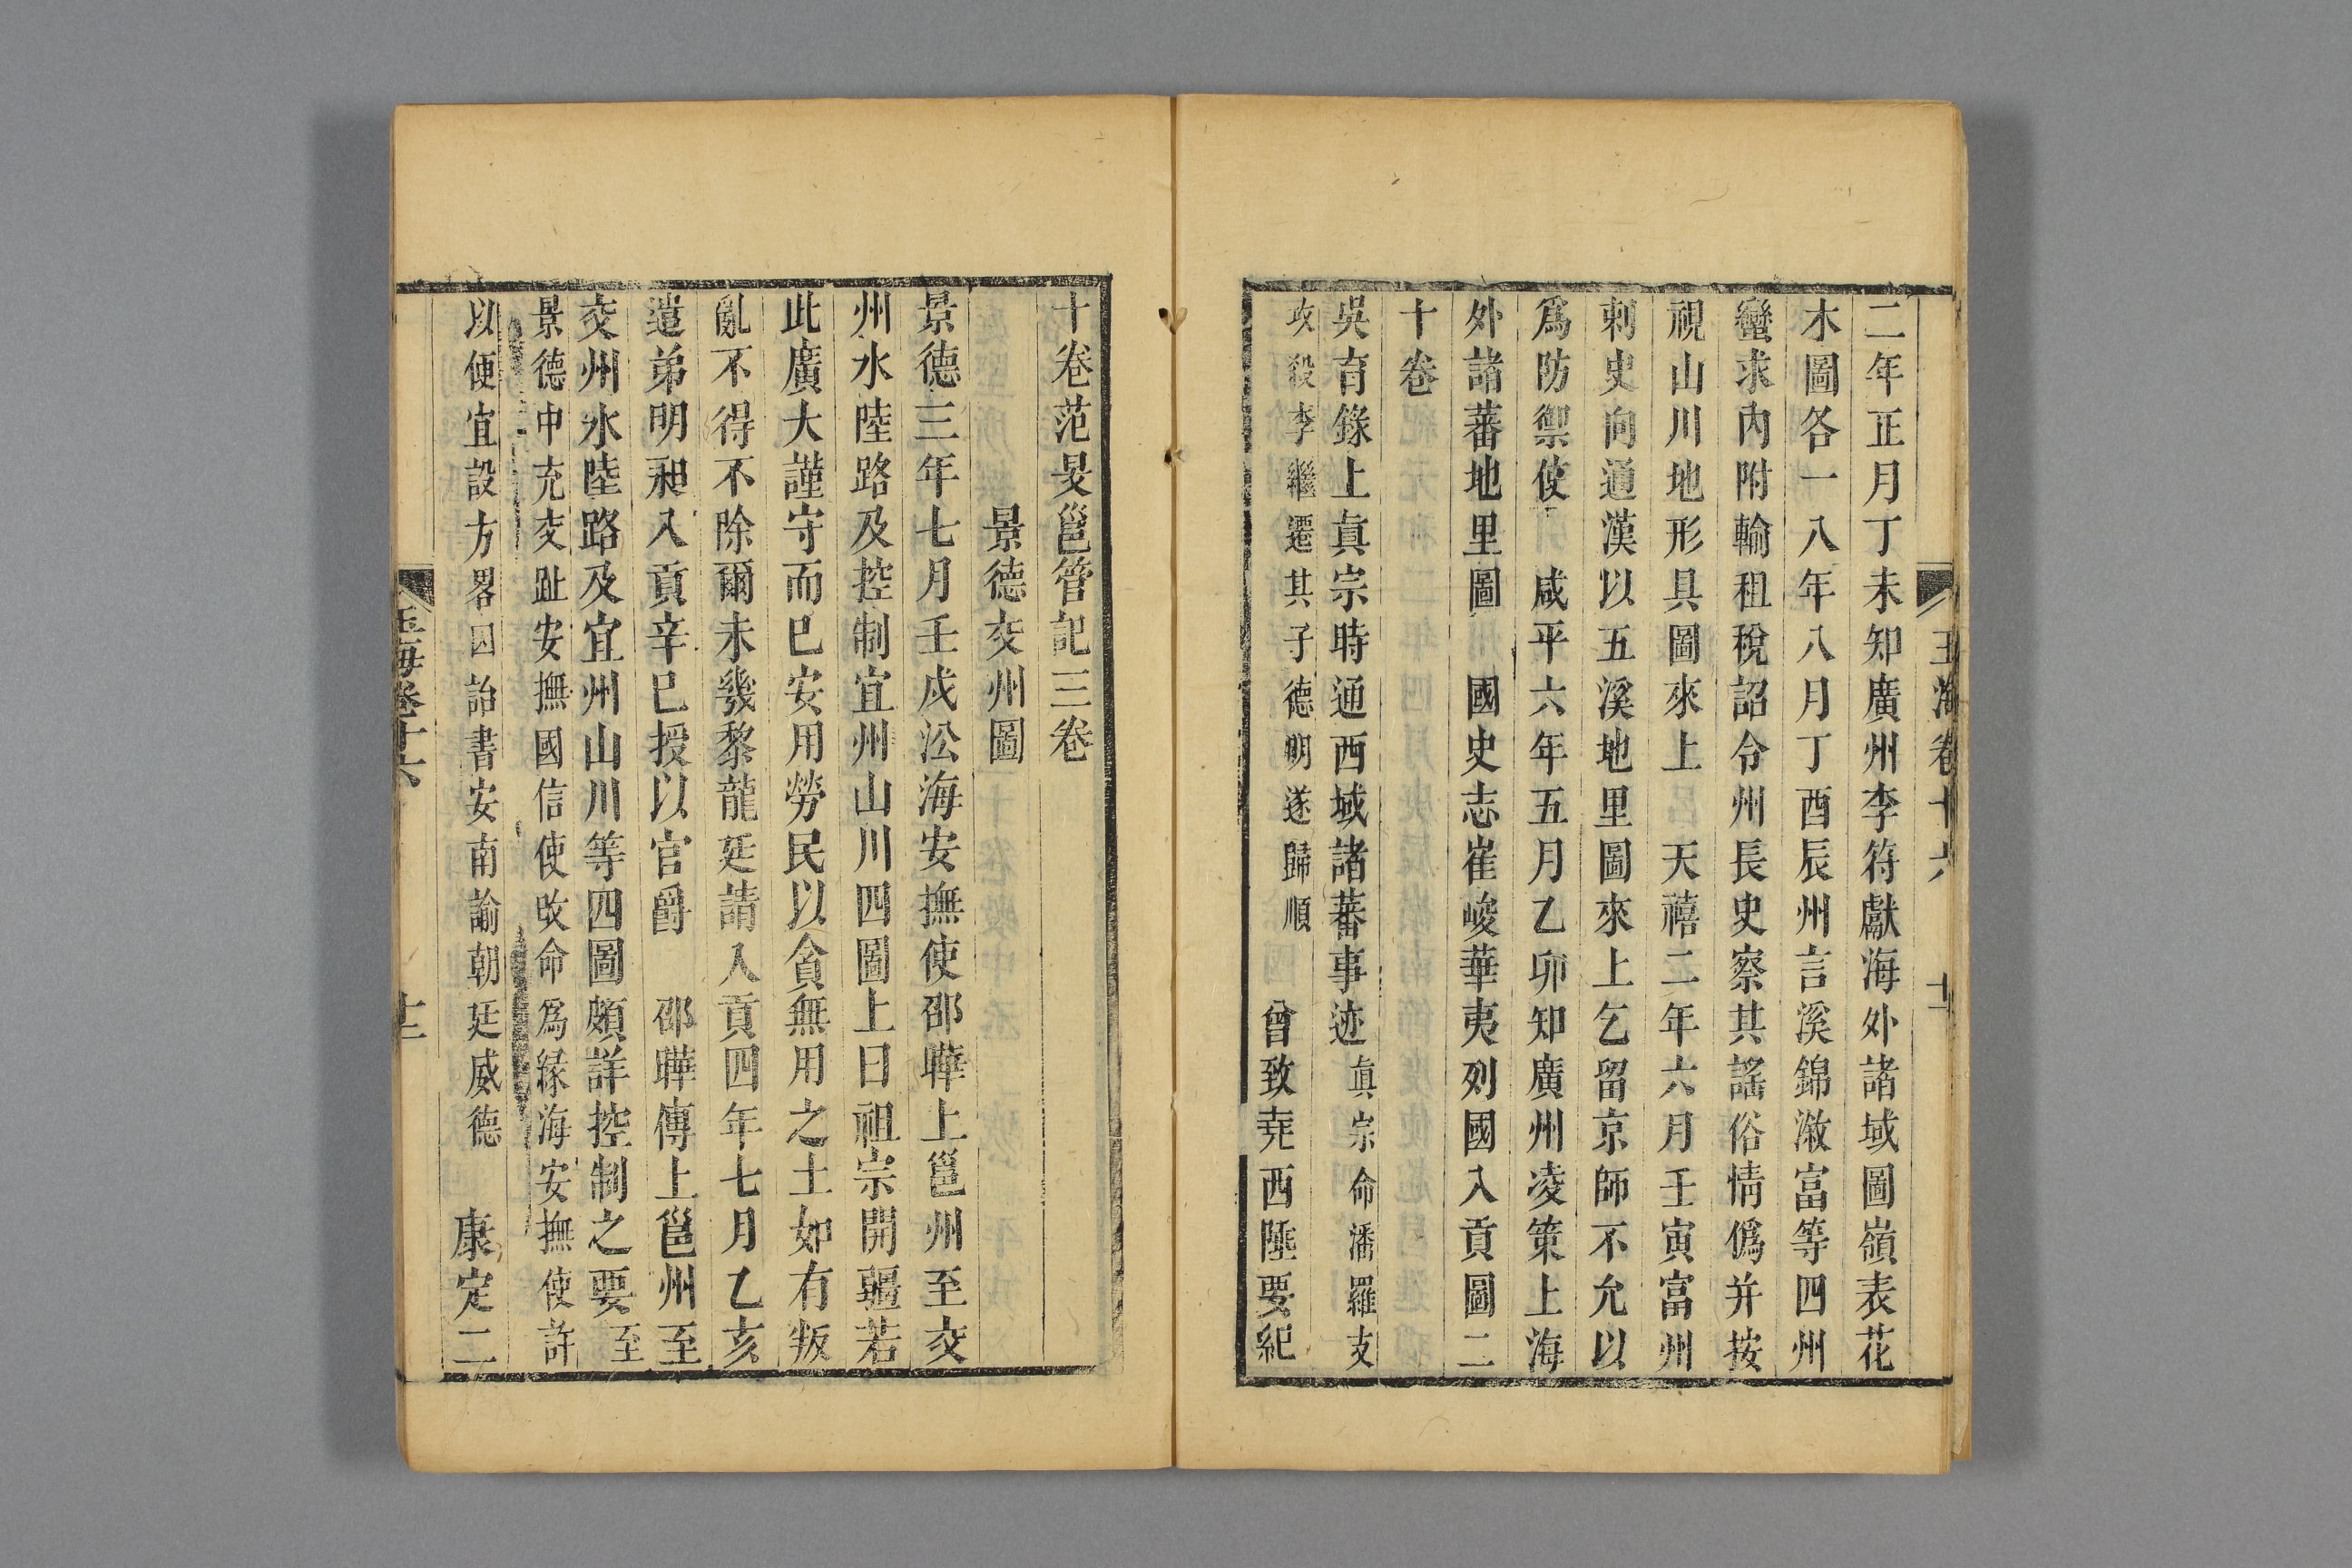 玉海卷十六 十二
二年正月丁未知廣州李符獻海外諸域圖嶺表花
木圖各一八年八月丁酉辰州言溪錦漵富等四州
蠻求內附輸租稅詔令州長史察其謠俗情僞并按
視山川地形具圖來上 天禧二年六月壬寅富州
刺史向通漢以五溪地里圖來上乞留京師不允以
爲防禦使 咸平六年五月乙卯知廣州凌策上海
外諸蕃地里圖 國史志崔峻華夷列國入貢圖二
十卷
吳育錄上真宗時通西域諸蕃事迹真宗命潘羅支
攻殺李繼遷其子德明遂歸順 曾致堯西陲要紀
十卷范旻邕管記三卷
景德交州圖
景德三年七月壬戌㳂海安撫使邵曄上邕州至交
州水陸路及控制宜州山川四圖上曰祖宗開疆若
此廣大謹守而已安用勞民以貪無用之土如有叛
亂不得不除爾未幾黎龍廷請入貢四年七月乙亥
遣弟明昶入貢辛巳授以官爵 邵曄傳上邕州至
交州水陸路及宜州山川等四圖頗詳控制之要至
景德中充交趾安撫國信使改命爲緣海安撫使許
以便宜設方畧因詒書安南諭朝廷威德 康定二
玉海卷十六 十二